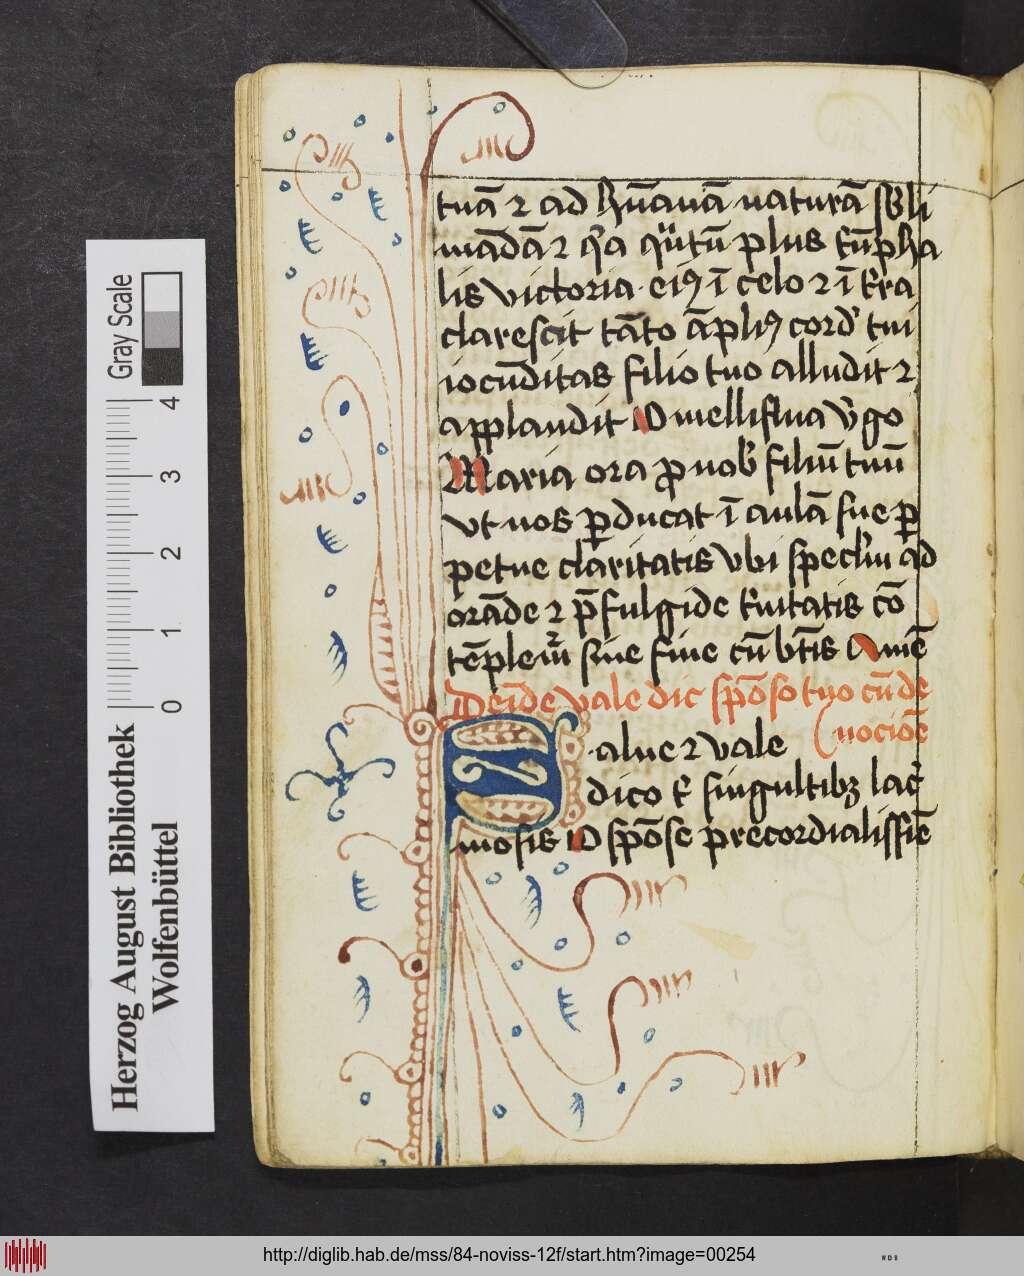 tuā ⁊ ad hūanā naturā sb̄li
mādā ⁊ qͥa qͣtū plus tͥūpha
lis victoria eiꝰ ī celo ⁊ ī tͬra
clarescit tāto āpliꝰ cordͥ tui
iocūditas filio tuo alludit ⁊
applaudit O melliflua vͥgo
Maria ora ꝓ nobͥ filiū tuū
vt nos ꝑducat ī aulā sue ꝑ
petue claritatis vbi specl̄m ad
orāde ⁊ p̄fulgide tͥnitatis cō
tēplemͬ sine fine cū bt̄is Amē
Deīde vale dic spōso tuo cū de
uocioē
Salue ⁊ vale
dico tͥ singultibꝫ lacͥ
mosis O spōse precordialissīe
Herzog August Bibliothek
Wolfenbüttel
Gray Scale
0 1 2 3 4
http://diglib.hab.de/mss/84-noviss-12f/start.htm?image=00254